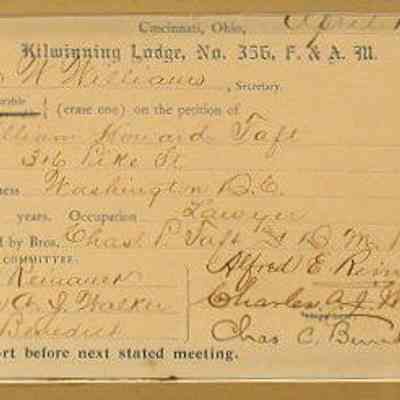 Cincinnati, Ohio, April
Kilwinning Lodge, No. 356, F. & A. M.
W Williams, Secretary.
(erase one) on the petition of
William Howard Taft
316 Pike St
ness Washington D.C.
years. Occupation Lawyer
d by Bros. Chas. P. Taft & D M
COMMITTEE.
Alfred E.
A. J. Walker Charles A. J.
Benedict Chas C. Bened
ort before next stated meeting.